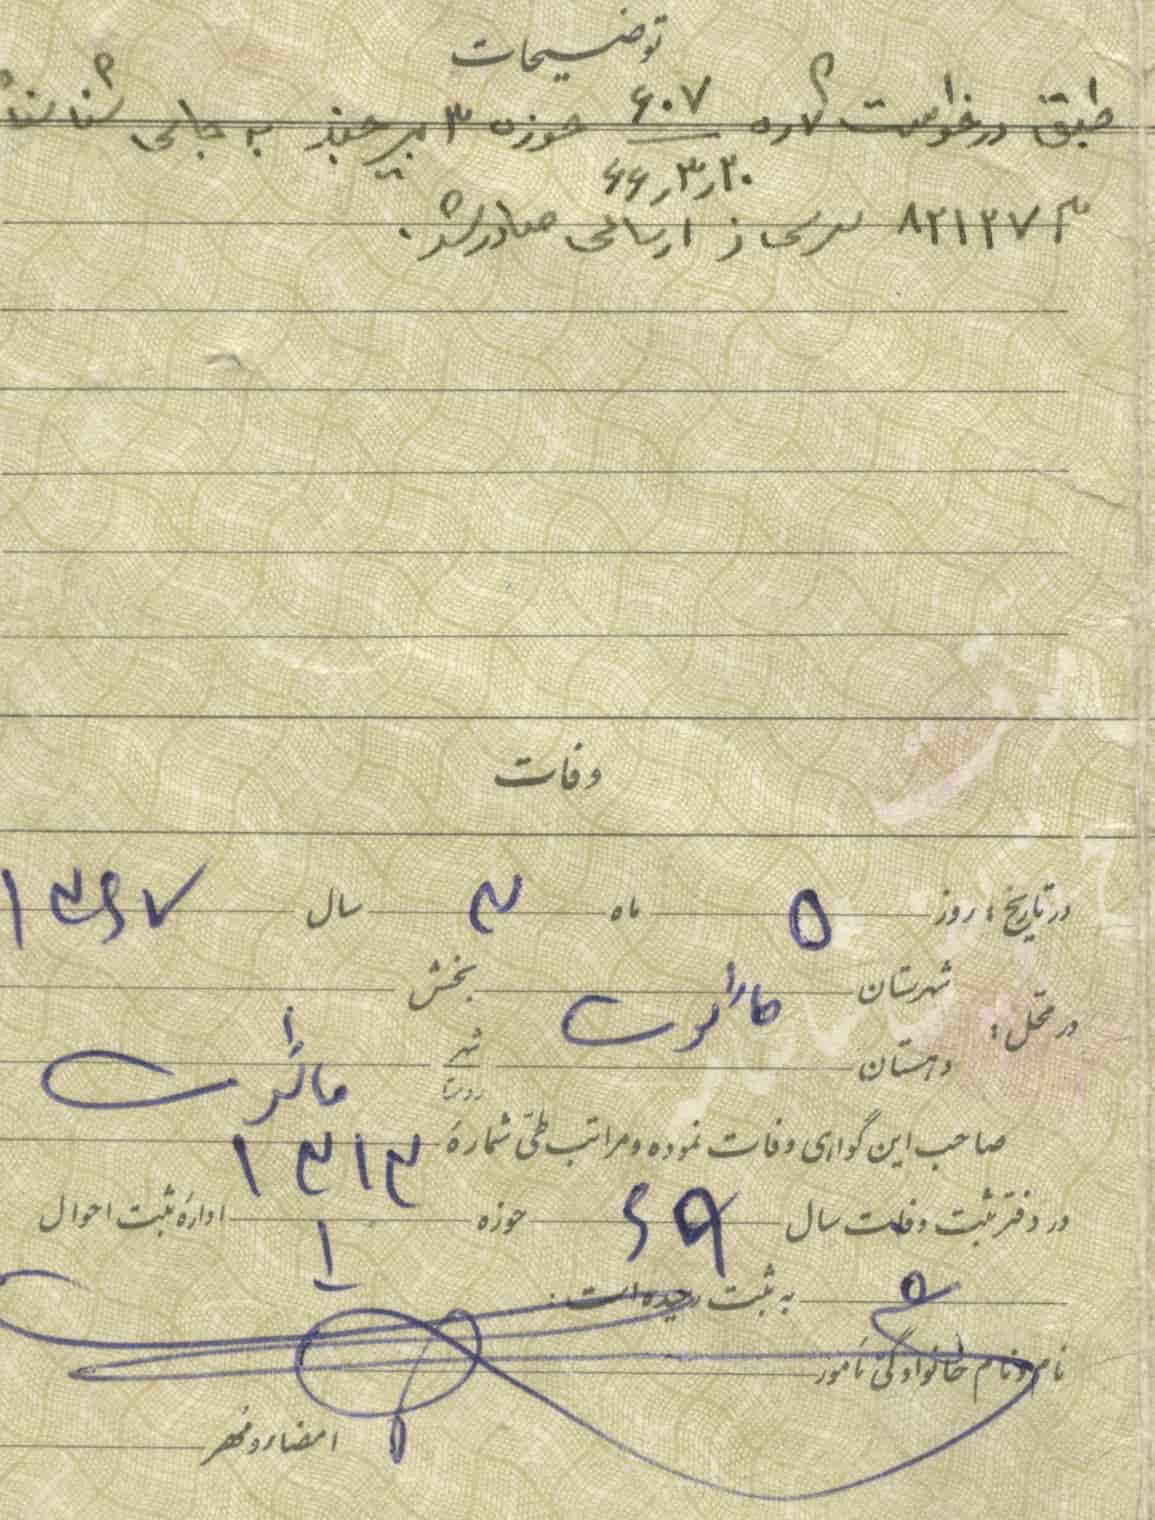 توضیحات
طبق درخواست ۶۰۷ حوزه ۳ بیرجند به جای
۶۶٫۳٫۲۰
۸۲۱۲۷ ارسالی صادر شد.
وفات
در تاریخ: روز ۵ ماه ۳ سال ۱۳۶۷
در محل: شهرستان بخش
دهستان شهر روستا
صاحب این گواهی وفات نموده و مراتب طی شمارهٔ ۱۳۱۳
در دفتر ثبت وفات سال ۶۹ حوزه ۱ ادارهٔ ثبت احوال
به ثبت رسیده است.
نام و نام خانوادگی مأمور
امضاء و مهر